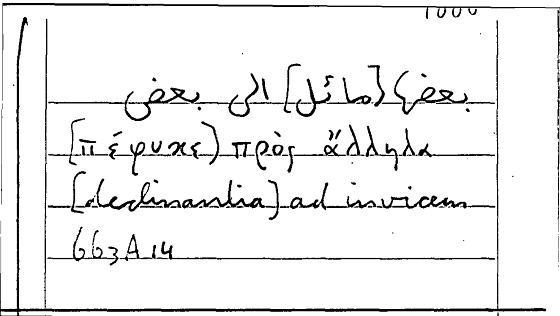 بعضها [مائل] الى بعض
[πέφυκε] πρὸς ἄλληλα
[declinantia] ad invicem
663A14